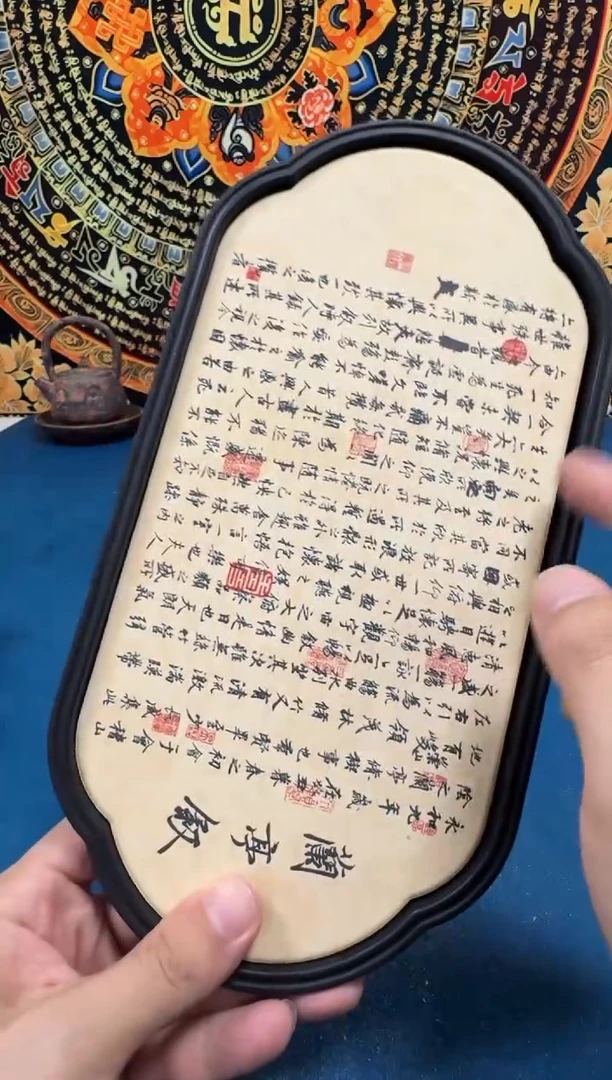 蘭亭叙
永和九年歲在癸丑暮春之初會于會稽山
陰之蘭亭脩稧事也群賢畢至少長咸集此
地有崇山峻領茂林脩竹又有清流激湍暎帶
左右引以為流觴曲水列坐其次雖無絲竹管弦
之盛一觴一詠亦足以暢敘幽情是日也天朗氣
清惠風和暢仰觀宇宙之大俯察品類之盛所
以遊目騁懷足以極視聽之娛信可樂也夫人
之相與俯仰一世或取諸懷抱悟言一室之內
或因寄所託放浪形骸之外雖趣舍萬殊靜躁
不同當其欣於所遇暫得於己快然自足不知
老之將至及其所之既惓情隨事遷感慨係
之矣向之所欣俛仰之間以為陳迹猶不
能不以之興懷況脩短隨化終期於盡古人云死
生亦大矣豈不痛哉每攬昔人興感之由若
合一契未嘗不臨文嗟悼不能喻之於懷固
知一死生為虛誕齊彭殤為妄作後之視今
亦由今之視昔悲夫故列敘時人錄其所述
雖世殊事異所以興懷其致一也後之攬者
亦將有感於斯文